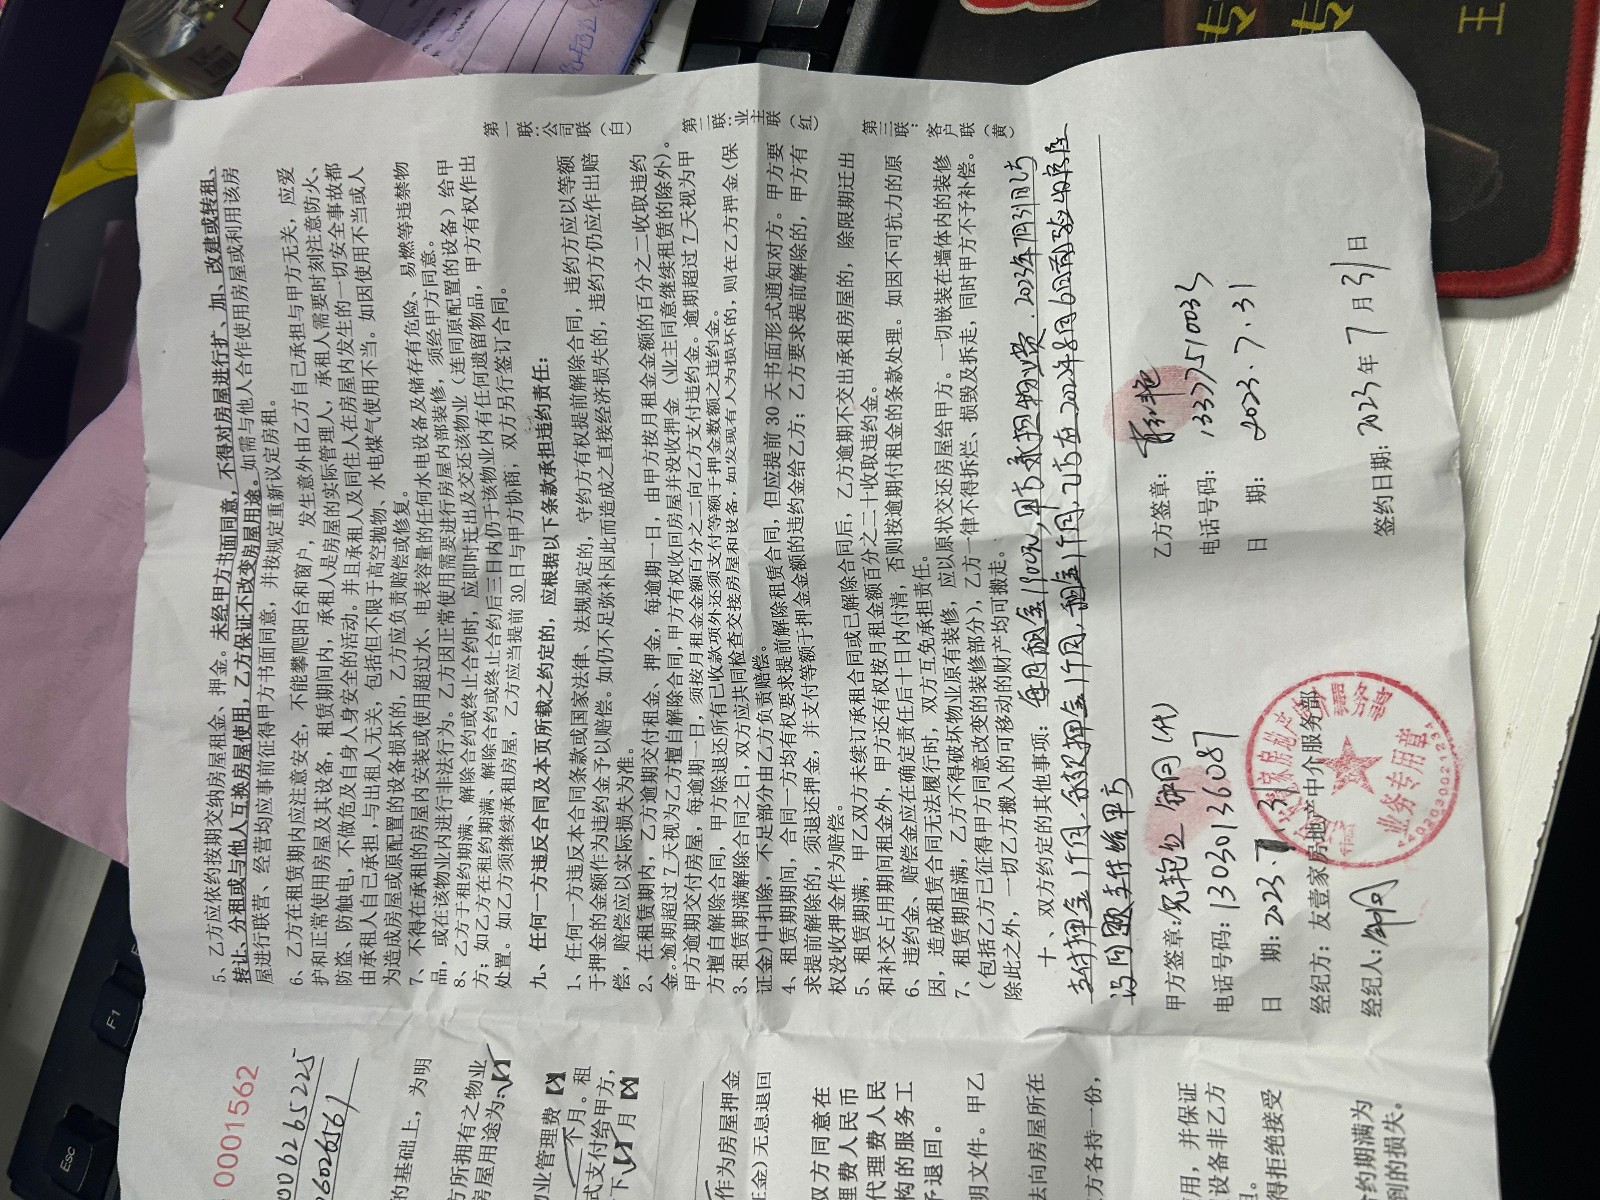 5、乙方应依约按期交纳房屋租金、押金。未经甲方书面同意，不得对房屋进行扩、加、改建或转租、
转让、分租或与他人互换房屋使用，乙方保证不改变房屋用途。如需与他人合作使用房屋或利用该房
屋进行联营、经营均应事前征得甲方书面同意，并按规定重新议定房租。
6、乙方在租赁期内应注意安全，不能攀爬阳台和窗户，发生意外由乙方自己承担与甲方无关，应爱
护和正常使用房屋及其设备，租赁期间内，承租人是房屋的实际管理人，承租人需要时刻注意防火、
防盗、防触电，不做危及自身人身安全的活动。并且承租人及同住人在房屋内发生的一切安全事故都
由承租人自己承担，与出租人无关，包括但不限于高空抛物、水电煤气使用不当。如因使用不当或人
为造成房屋或原配置的设备损坏的，乙方应负责赔偿或修复。
7、不得在承租的房屋内安装或使用超过水、电表容量的任何水电设备及储存有危险、易燃等违禁物
品，或在该物业内进行非法行为。乙方因正常使用需要进行房屋内部装修，须经甲方同意。
8、乙方于租约期满、解除合约或终止合约时，应即时迁出及交还该物业（连同原配置的设备）给甲
方；如乙方在租约期满、解除合约或终止合约后三日内仍于该物业内有任何遗留物品，甲方有权作出
处置。如乙方须继续承租房屋，乙方应当提前 30 日与甲方协商，双方另行签订合同。
九、任何一方违反合同及本页所载之约定的，应根据以下条款承担违约责任：
1、任何一方违反本合同条款或国家法律、法规规定的，守约方有权提前解除合同，违约方应以等额
于押金的金额作为违约金予以赔偿。如仍不足弥补因此而造成之直接经济损失的，违约方仍应作出赔
偿，赔偿应以实际损失为准。
2、在租赁期内，乙方逾期交付租金、押金，每逾期一日，由甲方按月租金金额的百分之二收取违约
金。逾期超过 7 天视为乙方擅自解除合同，甲方有权收回房屋并没收押金（业主同意继续租赁的除外）。
甲方逾期交付房屋，每逾期一日，须按月租金金额百分之二向乙方支付违约金。逾期超过 7 天视为甲
方擅自解除合同，甲方除退还所有已收款项外还须支付等额于押金数额之违约金。
3、租赁期满解除合同之日，双方应共同检查交接房屋和设备，如发现有人为损坏的，则在乙方押金（保
证金）中扣除，不足部分由乙方负责赔偿。
4、租赁期期间，合同一方均有权要求提前解除租赁合同，但应提前 30 天书面形式通知对方。甲方要
求提前解除的，须退还押金，并支付等额于押金金额的违约金给乙方；乙方要求提前解除的，甲方有
权没收押金作为赔偿。
5、租赁期满，甲乙双方未续订承租合同或已解除合同后，乙方逾期不交出承租房屋的，除限期迁出
和补交占用期间租金外，甲方还有权按月租金额百分之二十收取违约金。
6、违约金、赔偿金应在确定责任后十日内付清，否则按逾期付租金的条款处理。如因不可抗力的原
因，造成租赁合同无法履行时，双方互免承担责任。
7、租赁期届满，乙方不得破坏物业原有装修，应以原状交还房屋给甲方。一切嵌装在墙体内的装修
（包括乙方已征得甲方同意改变的装修部分），乙方一律不得拆烂、损毁及拆走，同时甲方不予补偿。
除此之外，一切乙方搬入的可移动的财产均可搬走。
十、双方约定的其他事项：每月租金1900元，甲方承担物业费．2023年7月31日乙方
支付押金1个月，
设问题支付给甲方
甲方签章：
电话号码：13030136087
日 期：2023.7.31
经纪方：友壹家房地产中介服务部
经纪人：
乙方签章：
电话号码：13377510033
日 期：2023.7.31
签约日期：2023 年 7 月 31 日
业务专用章
第一联：公司联（白）
第二联：业主联（红）
第三联：客户联（黄）
0001562
0062265225
的基础上，为明
方所拥有之物业
房屋用途为
业管理费
个月。租
式支付给甲方，
下 月
作为房屋押金
金）无息退回
双方同意在
理费人民币
代理费人民
构的服务工
予退回。
明文件。甲乙
法向房屋所在
方各持一份，
用，并保证
设备非乙方
得拒绝接受
合约期满为
到的损失。
Esc
F1
专
专
王